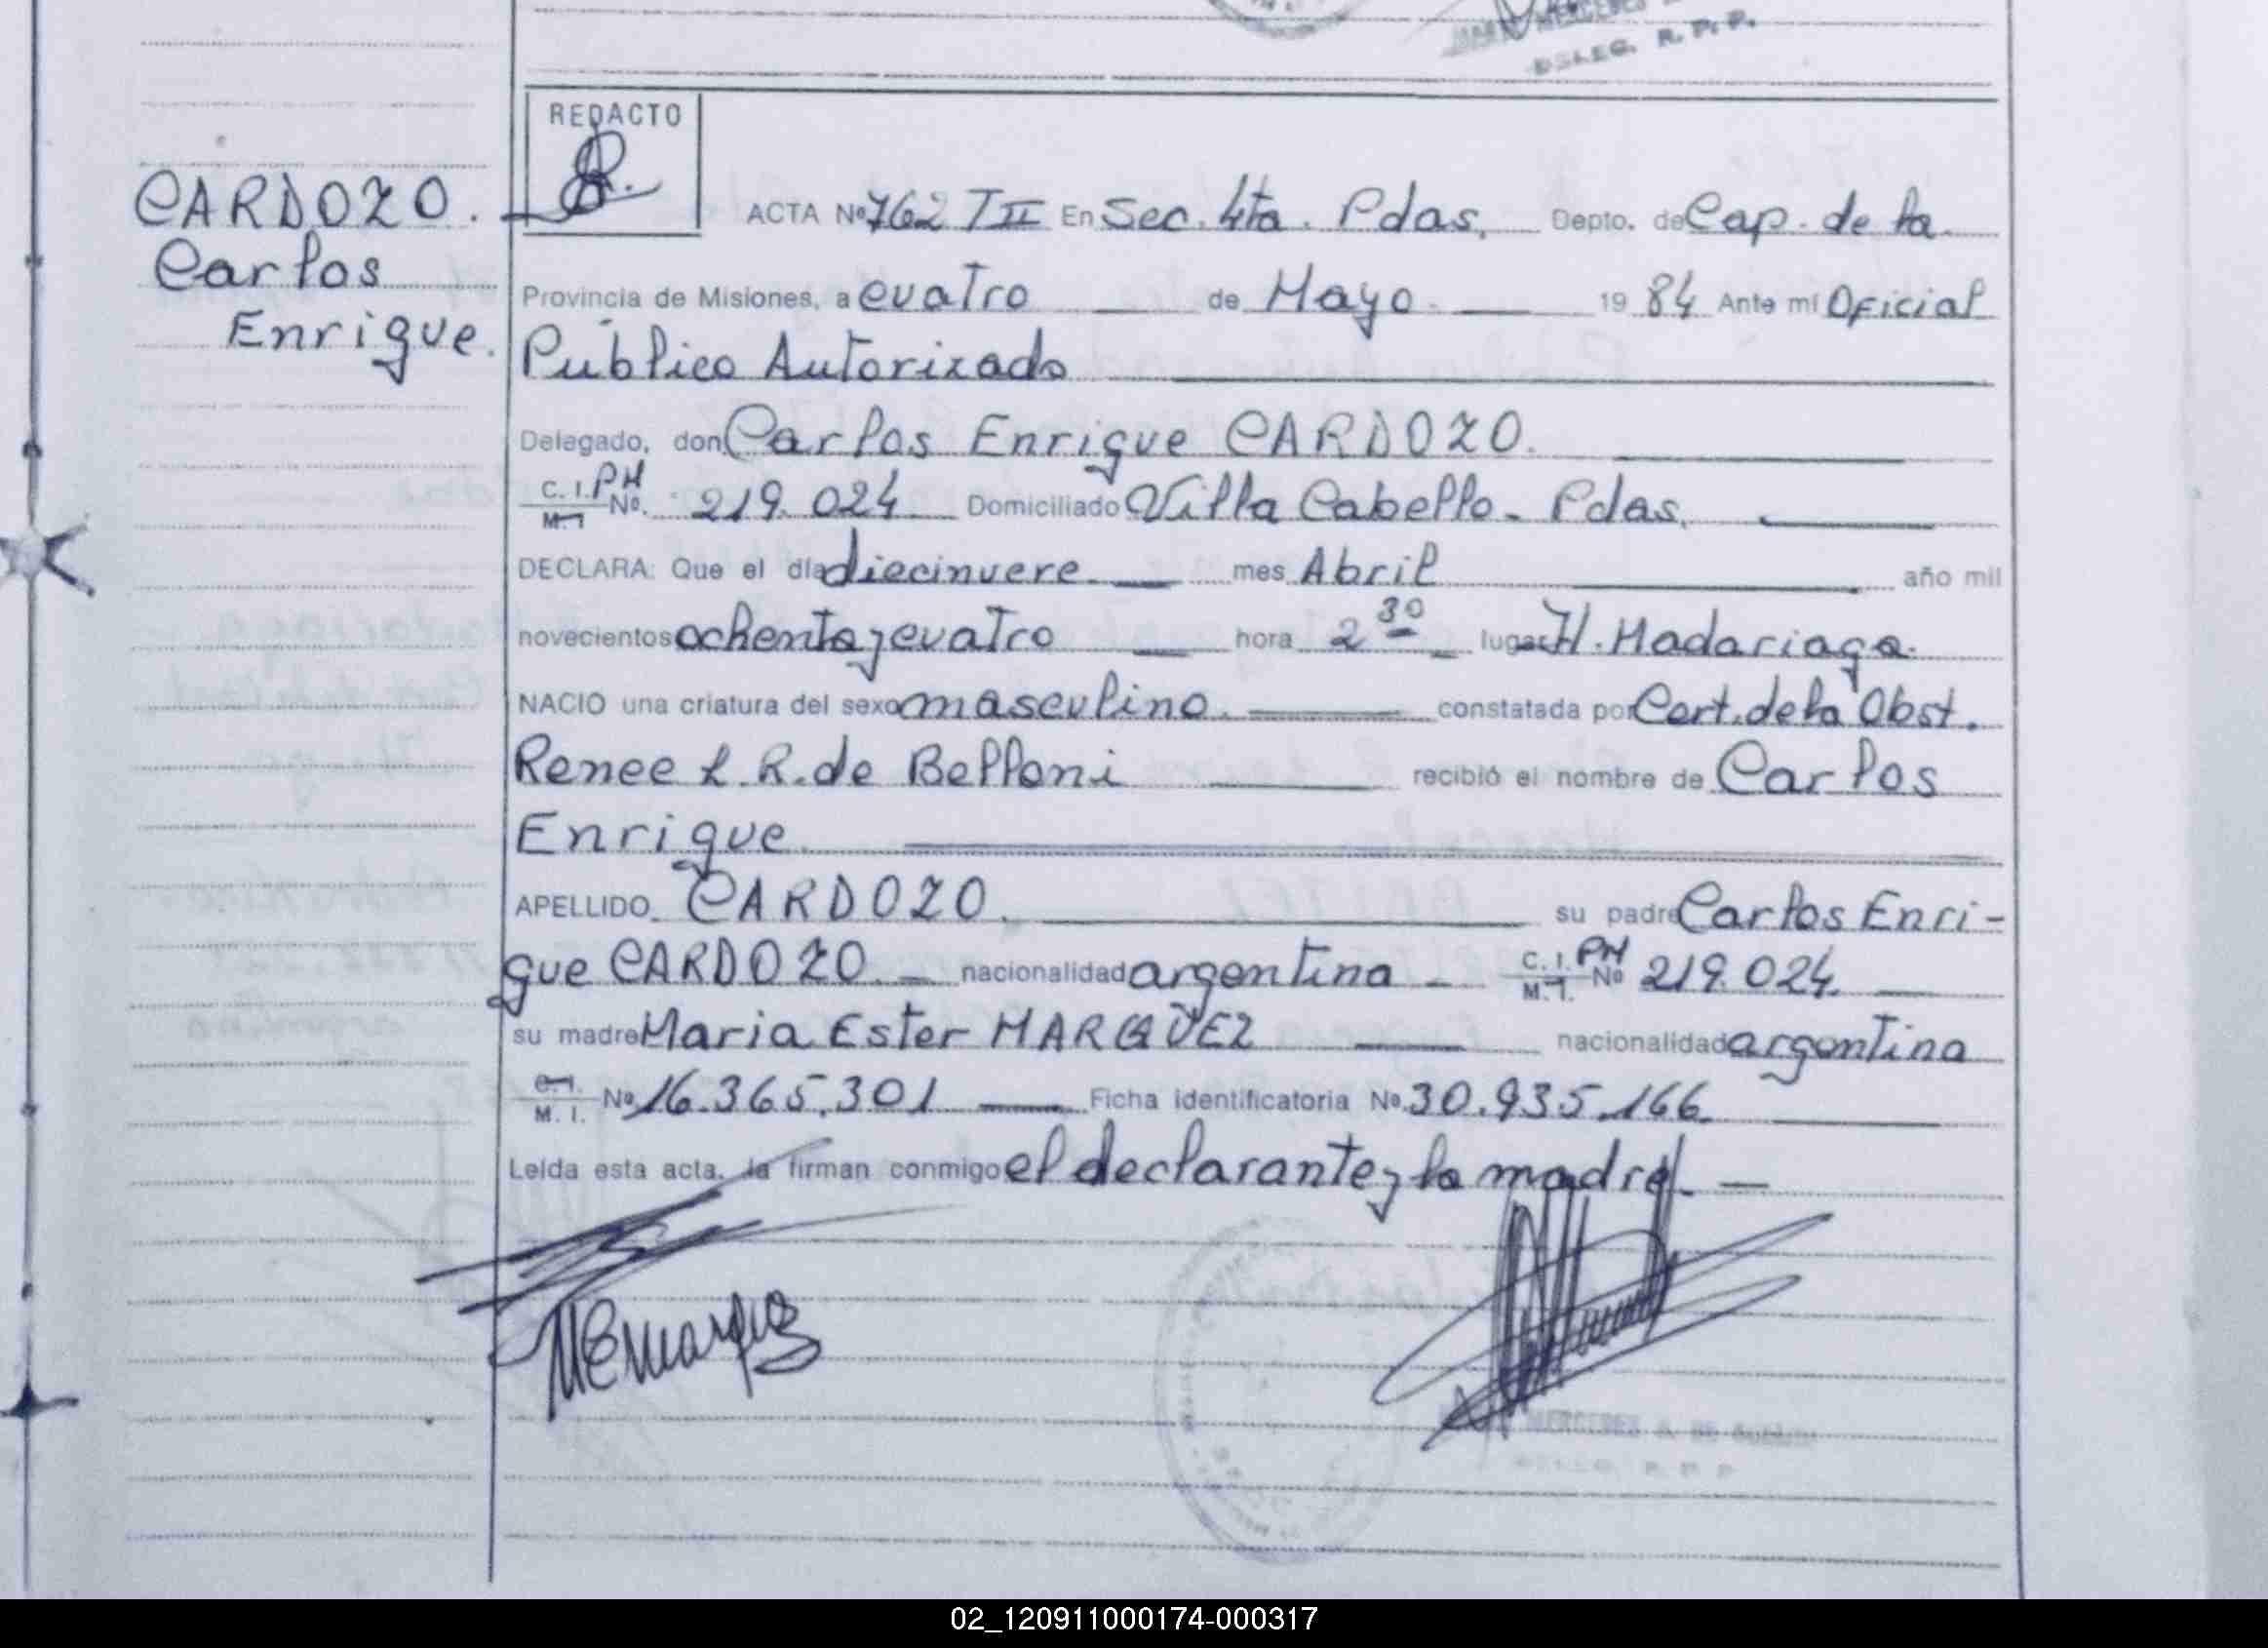 DELEG. R. P. P.
REDACTO
CARDOZO.
Carlos
Enrique.
ACTA Nº 762 T II En Sec. 4ta. Pdas. Depto. de Cap. de la
Provincia de Misiones, a cuatro de Mayo. 19 84 Ante mí Oficial
Público Autorizado
Delegado, don Carlos Enrique CARDOZO.
C. I. PM Nº. 219.024 Domiciliado Villa Cabello - Pdas.
M. I.
DECLARA: Que el día diecinueve mes Abril año mil
novecientos ochenta y cuatro hora 2 30 lugar H. Madariaga.
NACIO una criatura del sexo masculino. constatada por Cert. de la Obst.
Renee L. R. de Belloni recibió el nombre de Carlos
Enrique.
APELLIDO. CARDOZO. su padre Carlos Enri-
que CARDOZO. - nacionalidad argentina - C. I. PM Nº 219.024.
M. I.
su madre Maria Ester MARQUEZ nacionalidad argentina
C. I.
M. I. Nº 16.365.301 Ficha identificatoria Nº. 30.935.166.
Leída esta acta, la firman conmigo el declarante y la madre. -
MEMarquez
MERCEDES A. DE
02_120911000174-000317